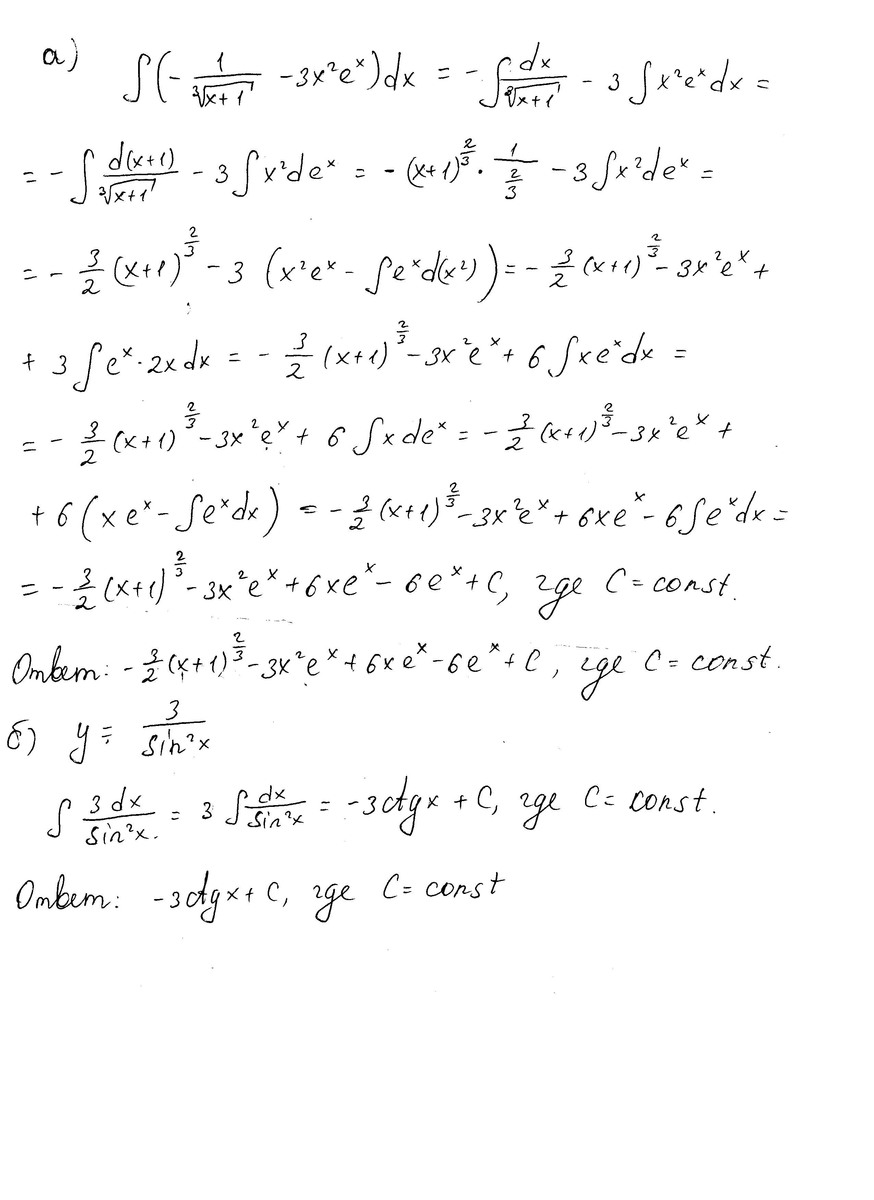 а) ∫(-1/∛(x+1) - 3x²eˣ)dx = -∫dx/∛(x+1) - 3∫x²eˣdx =
= -∫d(x+1)/∛(x+1) - 3∫x²deˣ = -(x+1)^(2/3) · 1/(2/3) - 3∫x²deˣ =
= -3/2(x+1)^(2/3) - 3(x²eˣ - ∫eˣd(x²)) = -3/2(x+1)^(2/3) - 3x²eˣ +
+ 3∫eˣ·2xdx = -3/2(x+1)^(2/3) - 3x²eˣ + 6∫xeˣdx =
= -3/2(x+1)^(2/3) - 3x²eˣ + 6∫xdeˣ = -3/2(x+1)^(2/3) - 3x²eˣ +
+ 6(xeˣ - ∫eˣdx) = -3/2(x+1)^(2/3) - 3x²eˣ + 6xeˣ - 6∫eˣdx =
= -3/2(x+1)^(2/3) - 3x²eˣ + 6xeˣ - 6eˣ + C, где C = const.
Ответ: -3/2(x+1)^(2/3) - 3x²eˣ + 6xeˣ - 6eˣ + C, где C = const.
б) y = 3/sin²x
∫3dx/sin²x = 3∫dx/sin²x = -3ctgx + C, где C = const.
Ответ: -3ctgx + C, где C = const